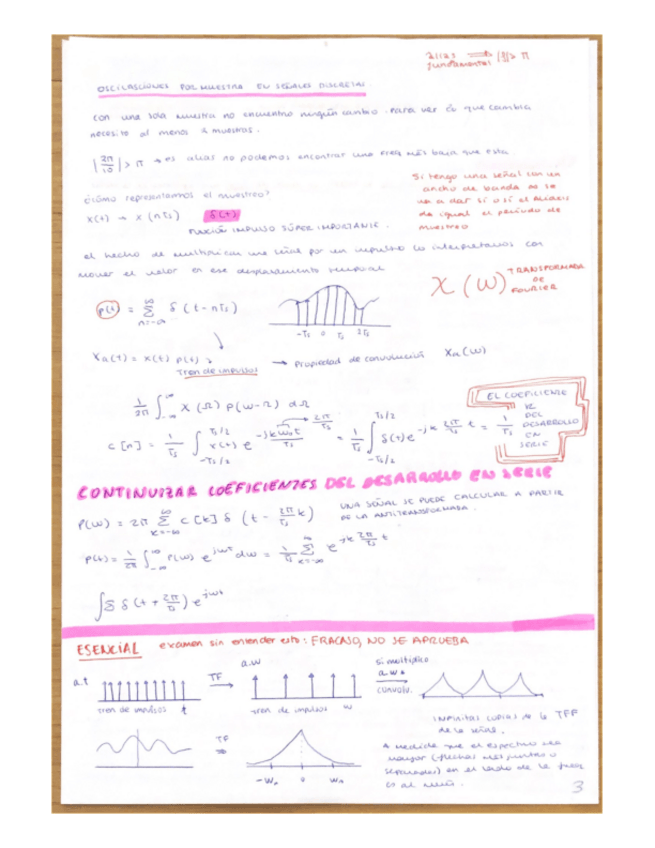 alias ⟹ |Ω| > π
fundamental
OSCILACIONES POR MUESTRA EN SEÑALES DISCRETAS
con una sola muestra no encuentro ningún cambio. Para ver lo que cambia
necesito al menos 2 muestras.
|2π/10| > π → es alias no podemos encontrar una freq más baja que esta
Si tengo una señal con un
ancho de banda no se
va a dar sí o sí el aliasing
da igual el período de
muestreo
¿cómo representamos el muestreo?
x(t) → x(nTs) δ(t)
FUNCIÓN IMPULSO SÚPER IMPORTANTE.
el hecho de multiplicar una señal por un impulso lo interpretamos con
mover el valor en ese desplazamiento temporal
X(ω) TRANSFORMADA
DE
FOURIER
p(t) = Σ δ(t-nTs)
n=-∞ ∞
-Ts 0 Ts 2Ts
Xa(t) = x(t) p(t)
Tren de impulsos → propiedad de convolución Xa(ω)
1/2π ∫ X(Ω) P(ω-Ω) dΩ
EL COEFICIENTE
K
DEL
DESARROLLO
EN
SERIE
c[n] = 1/Ts ∫ x(t) e^-jkω₀t = 1/Ts ∫ δ(t) e^-jk 2π/Ts t = 1/Ts
CONTINUIZAR COEFICIENTES DEL DESARROLLO EN SERIE
P(ω) = 2π Σ c[k] δ(t - 2π/Ts k)
UNA SEÑAL SE PUEDE CALCULAR A PARTIR
DE LA ANTITRANSFORMADA.
p(t) = 1/2π ∫ P(ω) e^jωt dω = 1/Ts Σ e^jk 2π/Ts t
∫Σ δ(t + 2π/Ts) e^jωt
ESENCIAL examen sin entender esto: FRACASO, NO SE APRUEBA
d.t TF d.w si multiplico
d.w.
convolu.
tren de impulsos t tren de impulsos w
INFINITAS COPIAS de la TFF
de la señal.
TF
A medida que el espectro sea
mayor (flechas más juntas o
separadas) en el lado de la freq
es al revés.
-W₀ 0 W₀
3